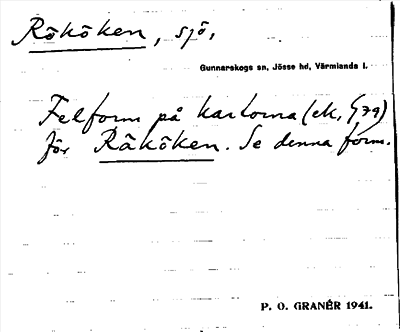 Rököken, sjö,
Gunnarskogs sn, Jösse hd, Värmlands l.
Felform på kartorna (ek, G79)
för Räköken. Se denna form.
P. O. GRANÉR 1941.